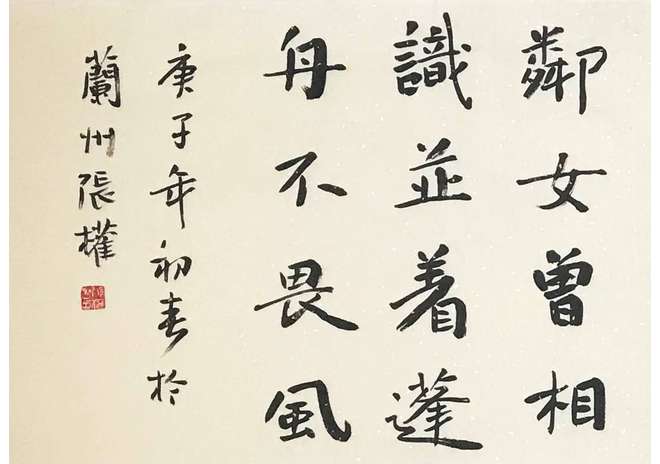 鄰女曾相
識並着蓬
舟不畏風
庚子年初春於
蘭州張權